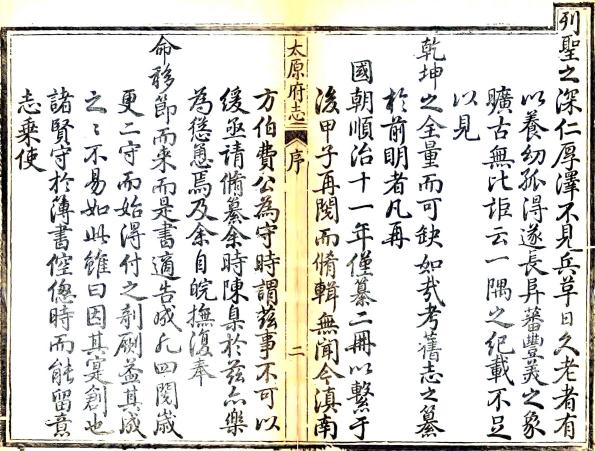 列聖之深仁厚澤不見兵革日久老者有
以養幼孤得遂長昇蕃豐美之象
曠古無比詎云一隅之紀載不足
以見
乾坤之全量而可缺如哉考舊志之纂
於前明者凡再
國朝順治十一年僅纂二冊以繫于
後甲子再閱而脩輯無聞今滇南
太原府志
序
二
方伯費公為守時謂茲事不可以
緩亟請脩纂余時陳臬於茲亦樂
為慫恿焉及余自皖撫復奉
命移節而来而是書適告成凡四閱歲
更二守而始得付之剞劂葢其成
之之不易如此雖曰因其寔創也
諸賢守於簿書倥傯時而能留意
志乘使